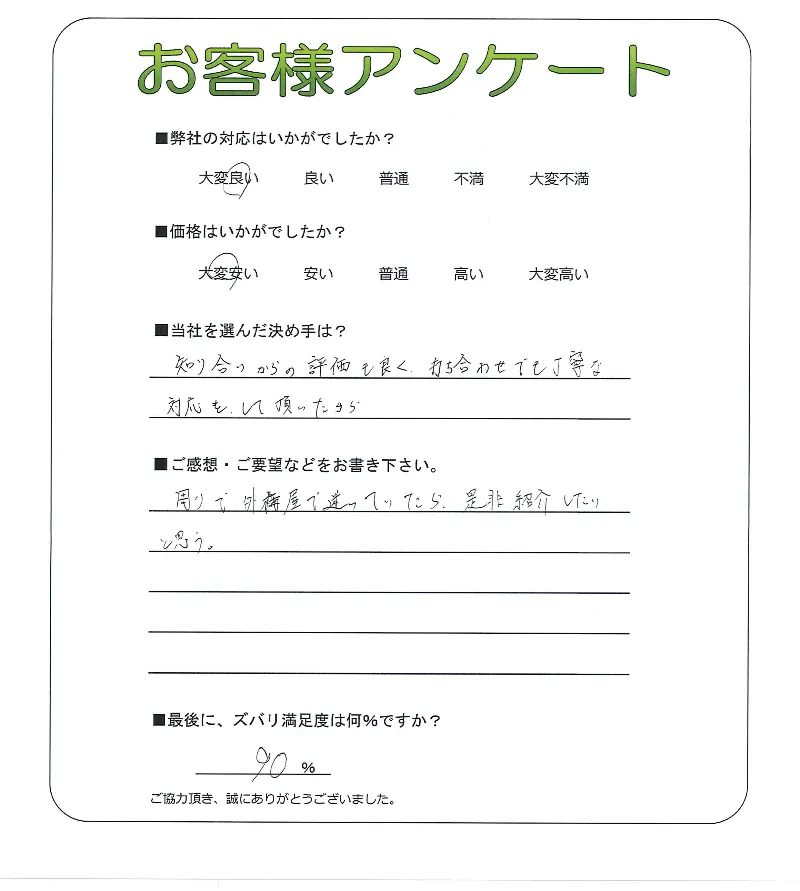 お客様アンケート
■弊社の対応はいかがでしたか？
大変良い 良い 普通 不満 大変不満
■価格はいかがでしたか？
大変安い 安い 普通 高い 大変高い
■当社を選んだ決め手は？
知り合いからの評価も良く、打ち合わせでも丁寧な
対応をして頂いたから
■ご感想・ご要望などをお書き下さい。
周りで外構屋で迷っていたら、是非紹介したい
と思う。
■最後に、ズバリ満足度は何％ですか？
90 %
ご協力頂き、誠にありがとうございました。